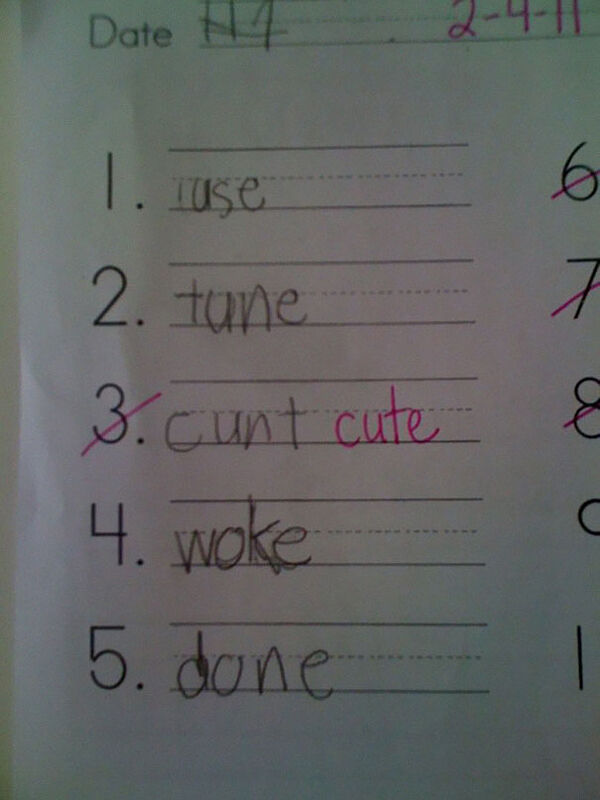 Date 2-4-11
1. use
2. tune
3. cunt cute
4. woke
5. done
6
7
8